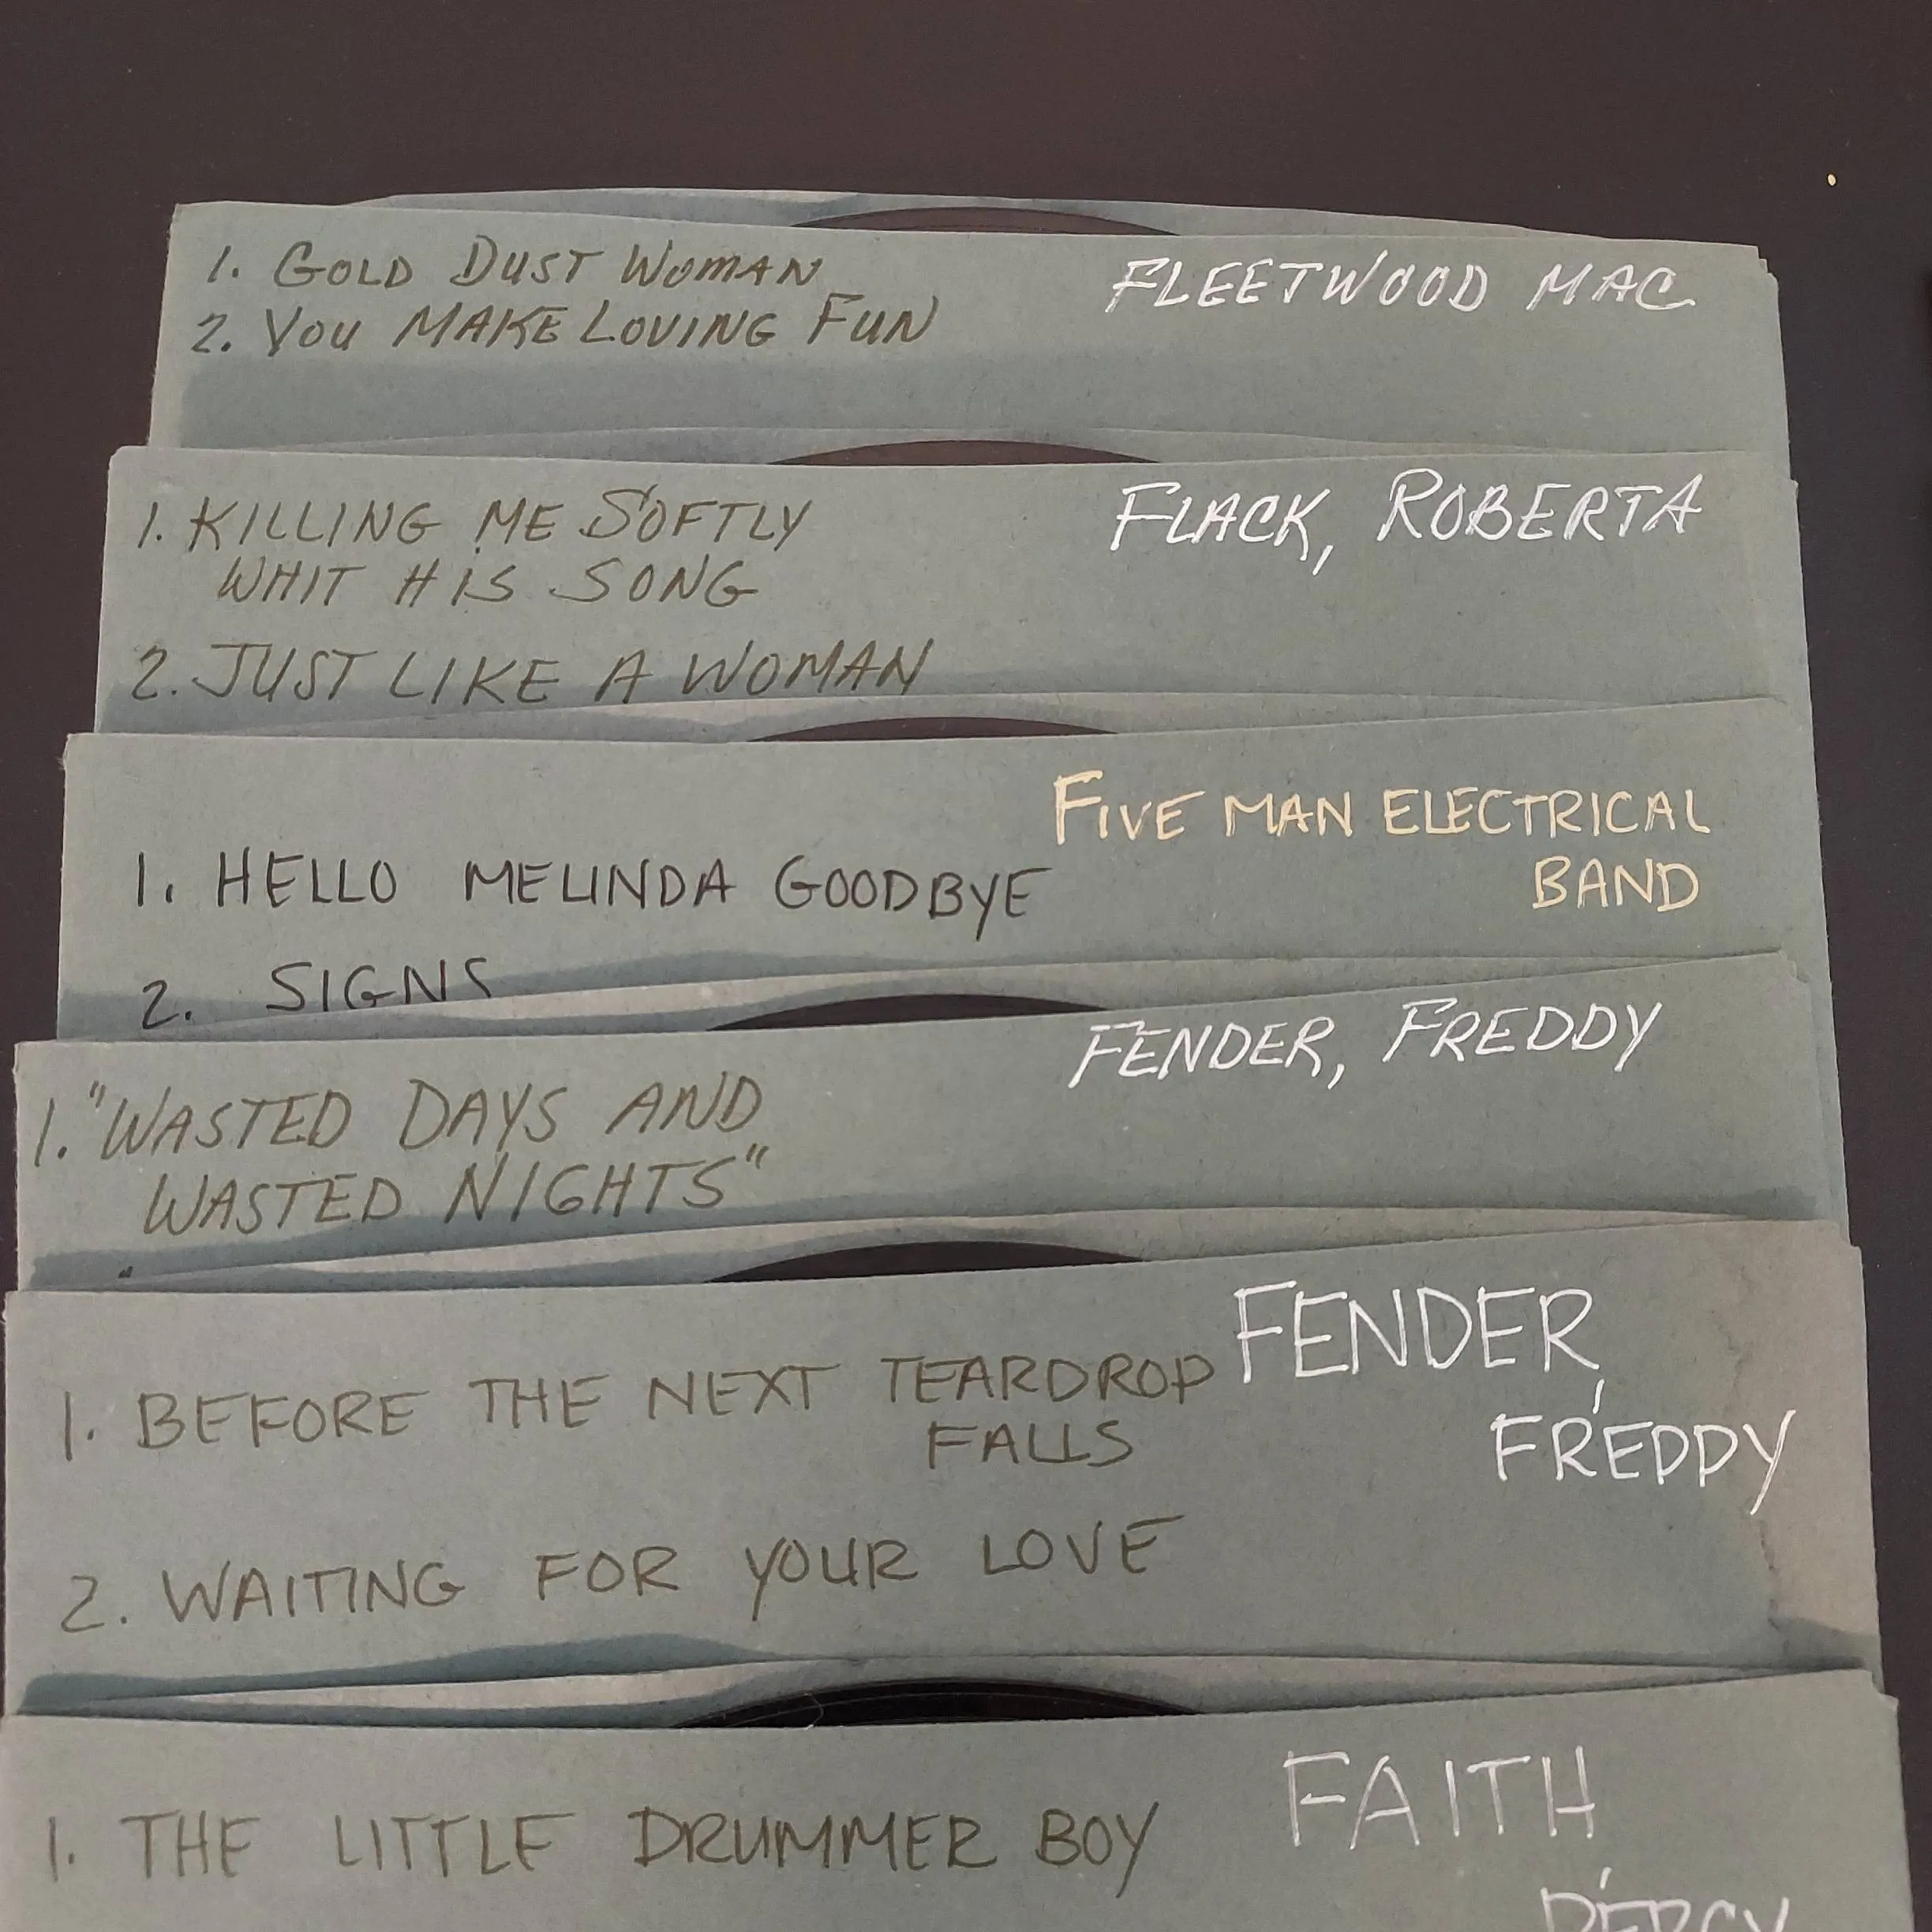 1. GOLD DUST WOMAN
2. YOU MAKE LOVING FUN
FLEETWOOD MAC
1. KILLING ME SOFTLY
WHIT HIS SONG
2. JUST LIKE A WOMAN
FLACK, ROBERTA
FIVE MAN ELECTRICAL
BAND
1. HELLO MELINDA GOODBYE
2. SIGNS
FENDER, FREDDY
1. "WASTED DAYS AND
WASTED NIGHTS"
FENDER,
FREDDY
1. BEFORE THE NEXT TEARDROP
FALLS
2. WAITING FOR YOUR LOVE
FAITH
PERCY
1. THE LITTLE DRUMMER BOY